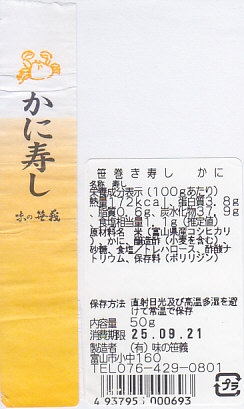 かに寿し
味の笹義
笹巻き寿し　かに
名称 寿し
栄養成分表示（100gあたり）
熱量172kcal、蛋白質3.8g
、脂質0.6g、炭水化物37.9g
、食塩相当量1.1g（推定値）
原材料名　米（富山県産コシヒカリ
）、かに、醸造酢（小麦を含む）、
砂糖、食塩／トレハロース、酢酸ナ
トリウム、保存料（ポリリジン）
保存方法　直射日光及び高温多湿を避
けて常温で保存
内容量　50g
消費期限　25.09.21
製造者　（有）味の笹義
富山市小中160
TEL076-429-0801
4 937951 000693
プラ